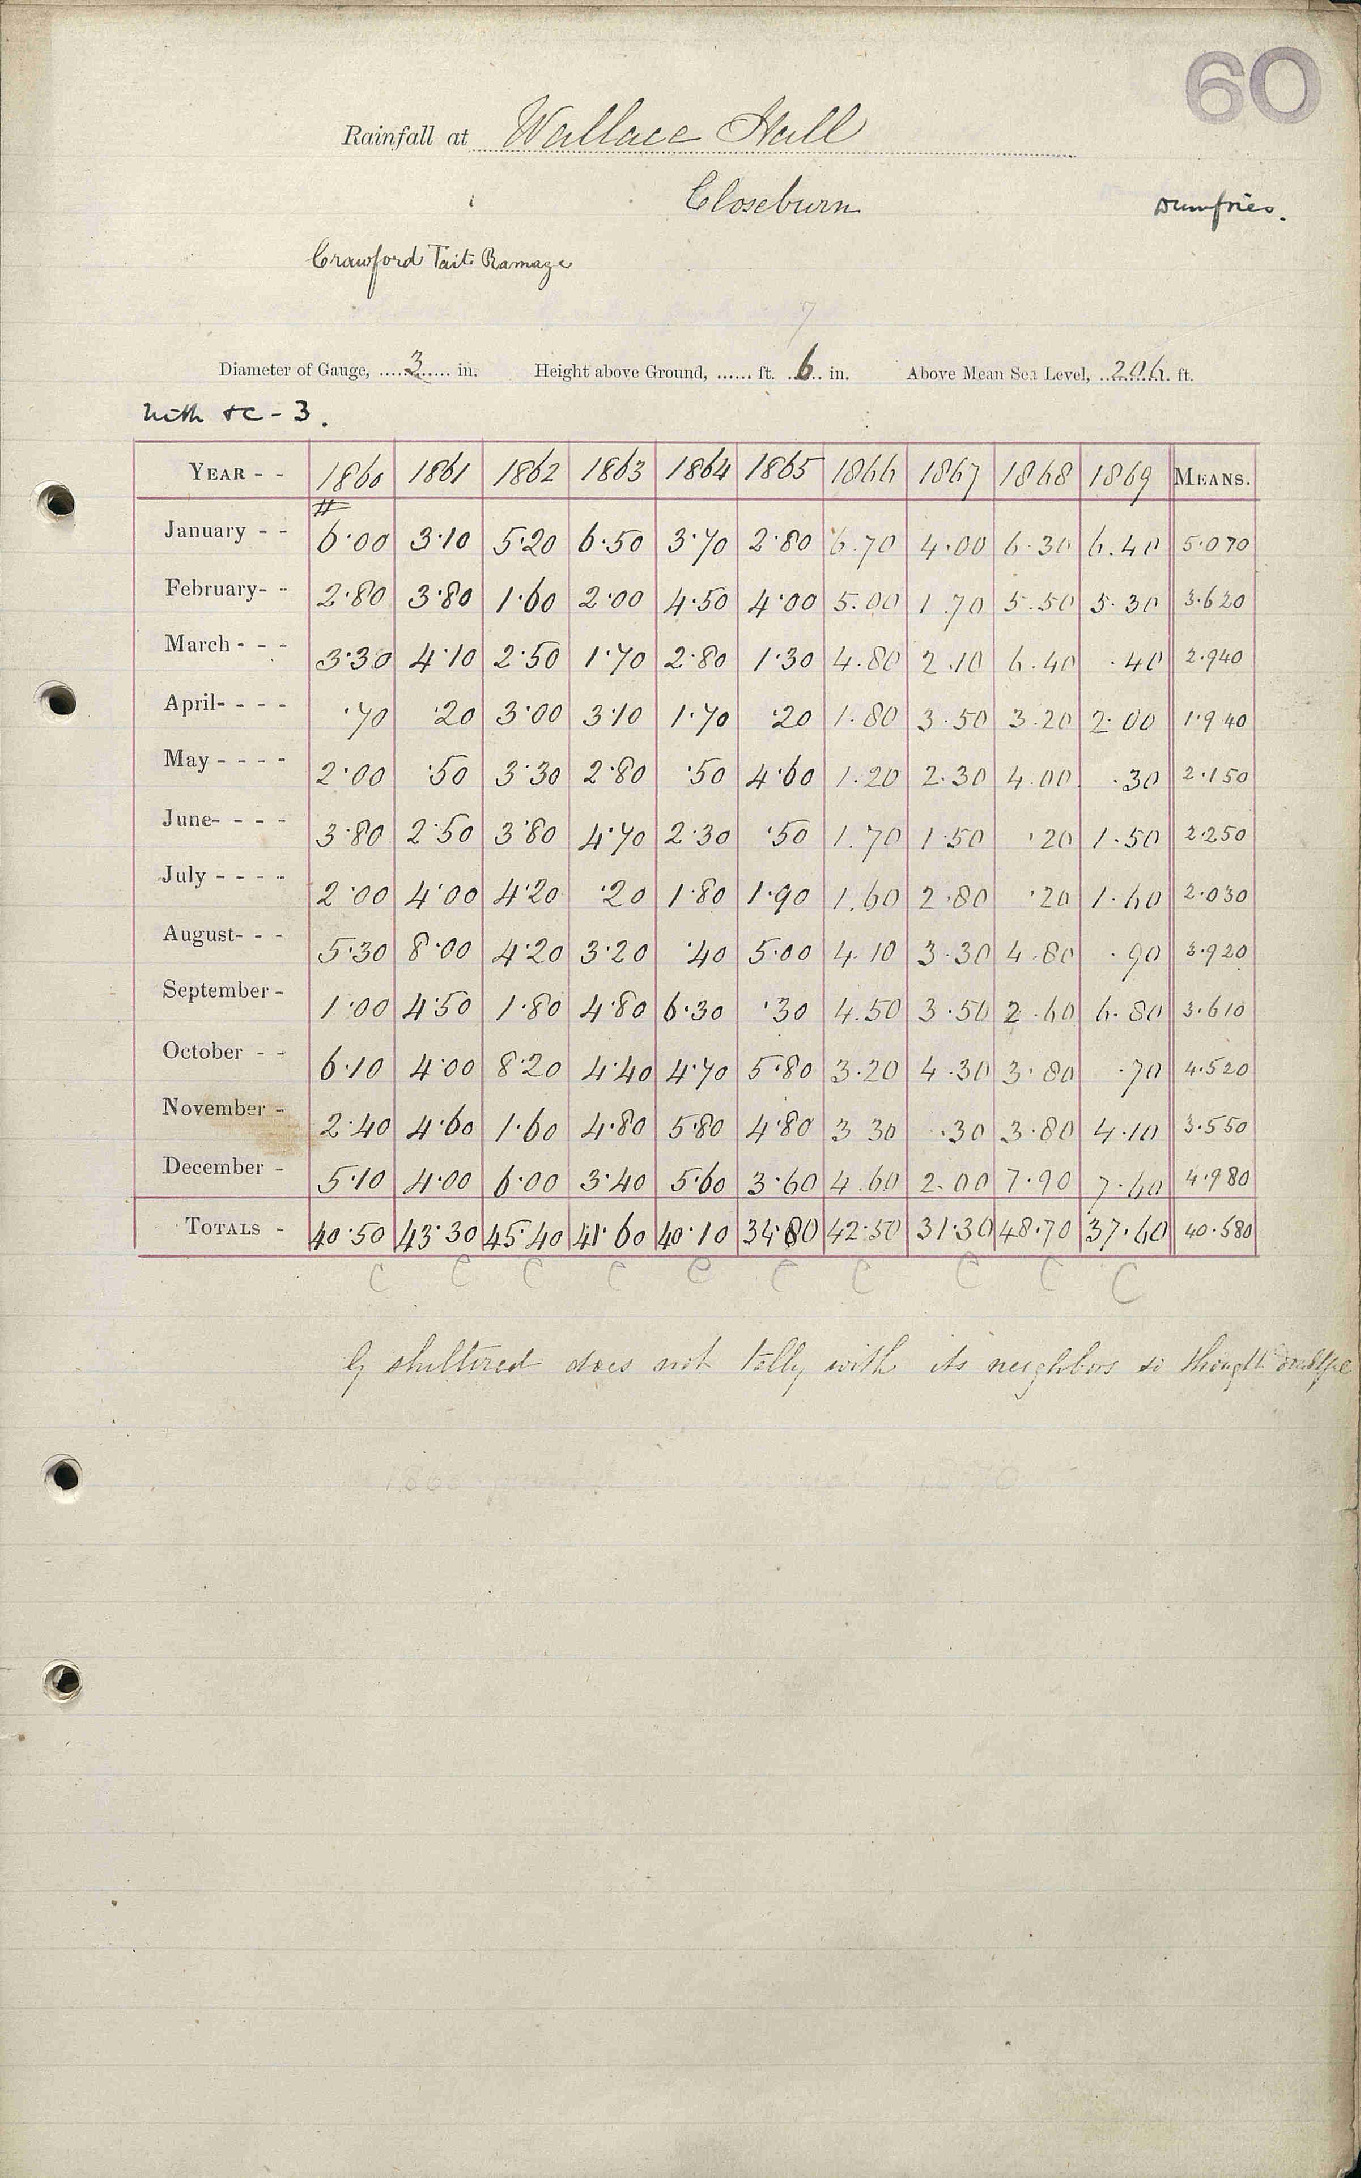 60
Rainfall at Wallace Hall
Closeburn Dumfries.
Crawford Tait Ramage
7
Diameter of Gauge, 3 in. Height above Ground, ...... ft. 6 in. Above Mean Sea Level, 206 ft.
Nith &c - 3.
YEAR - - 1860 1861 1862 1863 1864 1865 1866 1867 1868 1869 MEANS.
#
January - - 6·00 3·10 5·20 6·50 3·70 2·80 6.70 4·00 6·30 6.40 5·070
February- - 2·80 3·80 1·60 2·00 4·50 4·00 5.00 1.70 5.50 5.30 3·620
March - - - 3·30 4·10 2·50 1·70 2·80 1·30 4.80 2.10 6.40 ·40 2·940
April- - - - ·70 ·20 3·00 3·10 1·70 ·20 1.80 3.50 3.20 2.00 1·940
May - - - - 2·00 ·50 3·30 2·80 ·50 4·60 1.20 2.30 4.00 ·30 2·150
June- - - - 3·80 2·50 3·80 4·70 2·30 ·50 1.70 1·50 ·20 1·50 2·250
July - - - - 2·00 4·00 4·20 ·20 1·80 1·90 1.60 2·80 ·20 1·60 2·030
August- - - 5·30 8·00 4·20 3·20 ·40 5·00 4.10 3·30 4.80 ·90 3·920
September - 1·00 4·50 1·80 4·80 6·30 ·30 4.50 3·50 2.60 6.80 3·610
October - - 6·10 4·00 8·20 4·40 4·70 5·80 3.20 4.30 3·80 ·70 4·520
November - 2·40 4·60 1·60 4·80 5·80 4·80 3 30 ·30 3·80 4·10 3·550
December - 5·10 4·00 6·00 3·40 5·60 3·60 4.60 2.00 7·90 7·60 4·980
TOTALS - 40·50 43·30 45·40 41·60 40·10 34·80 42·50 31·30 48·70 37·60 40·580
C C C C C C C C C C
G sheltered does not tally with its neighbors so thought